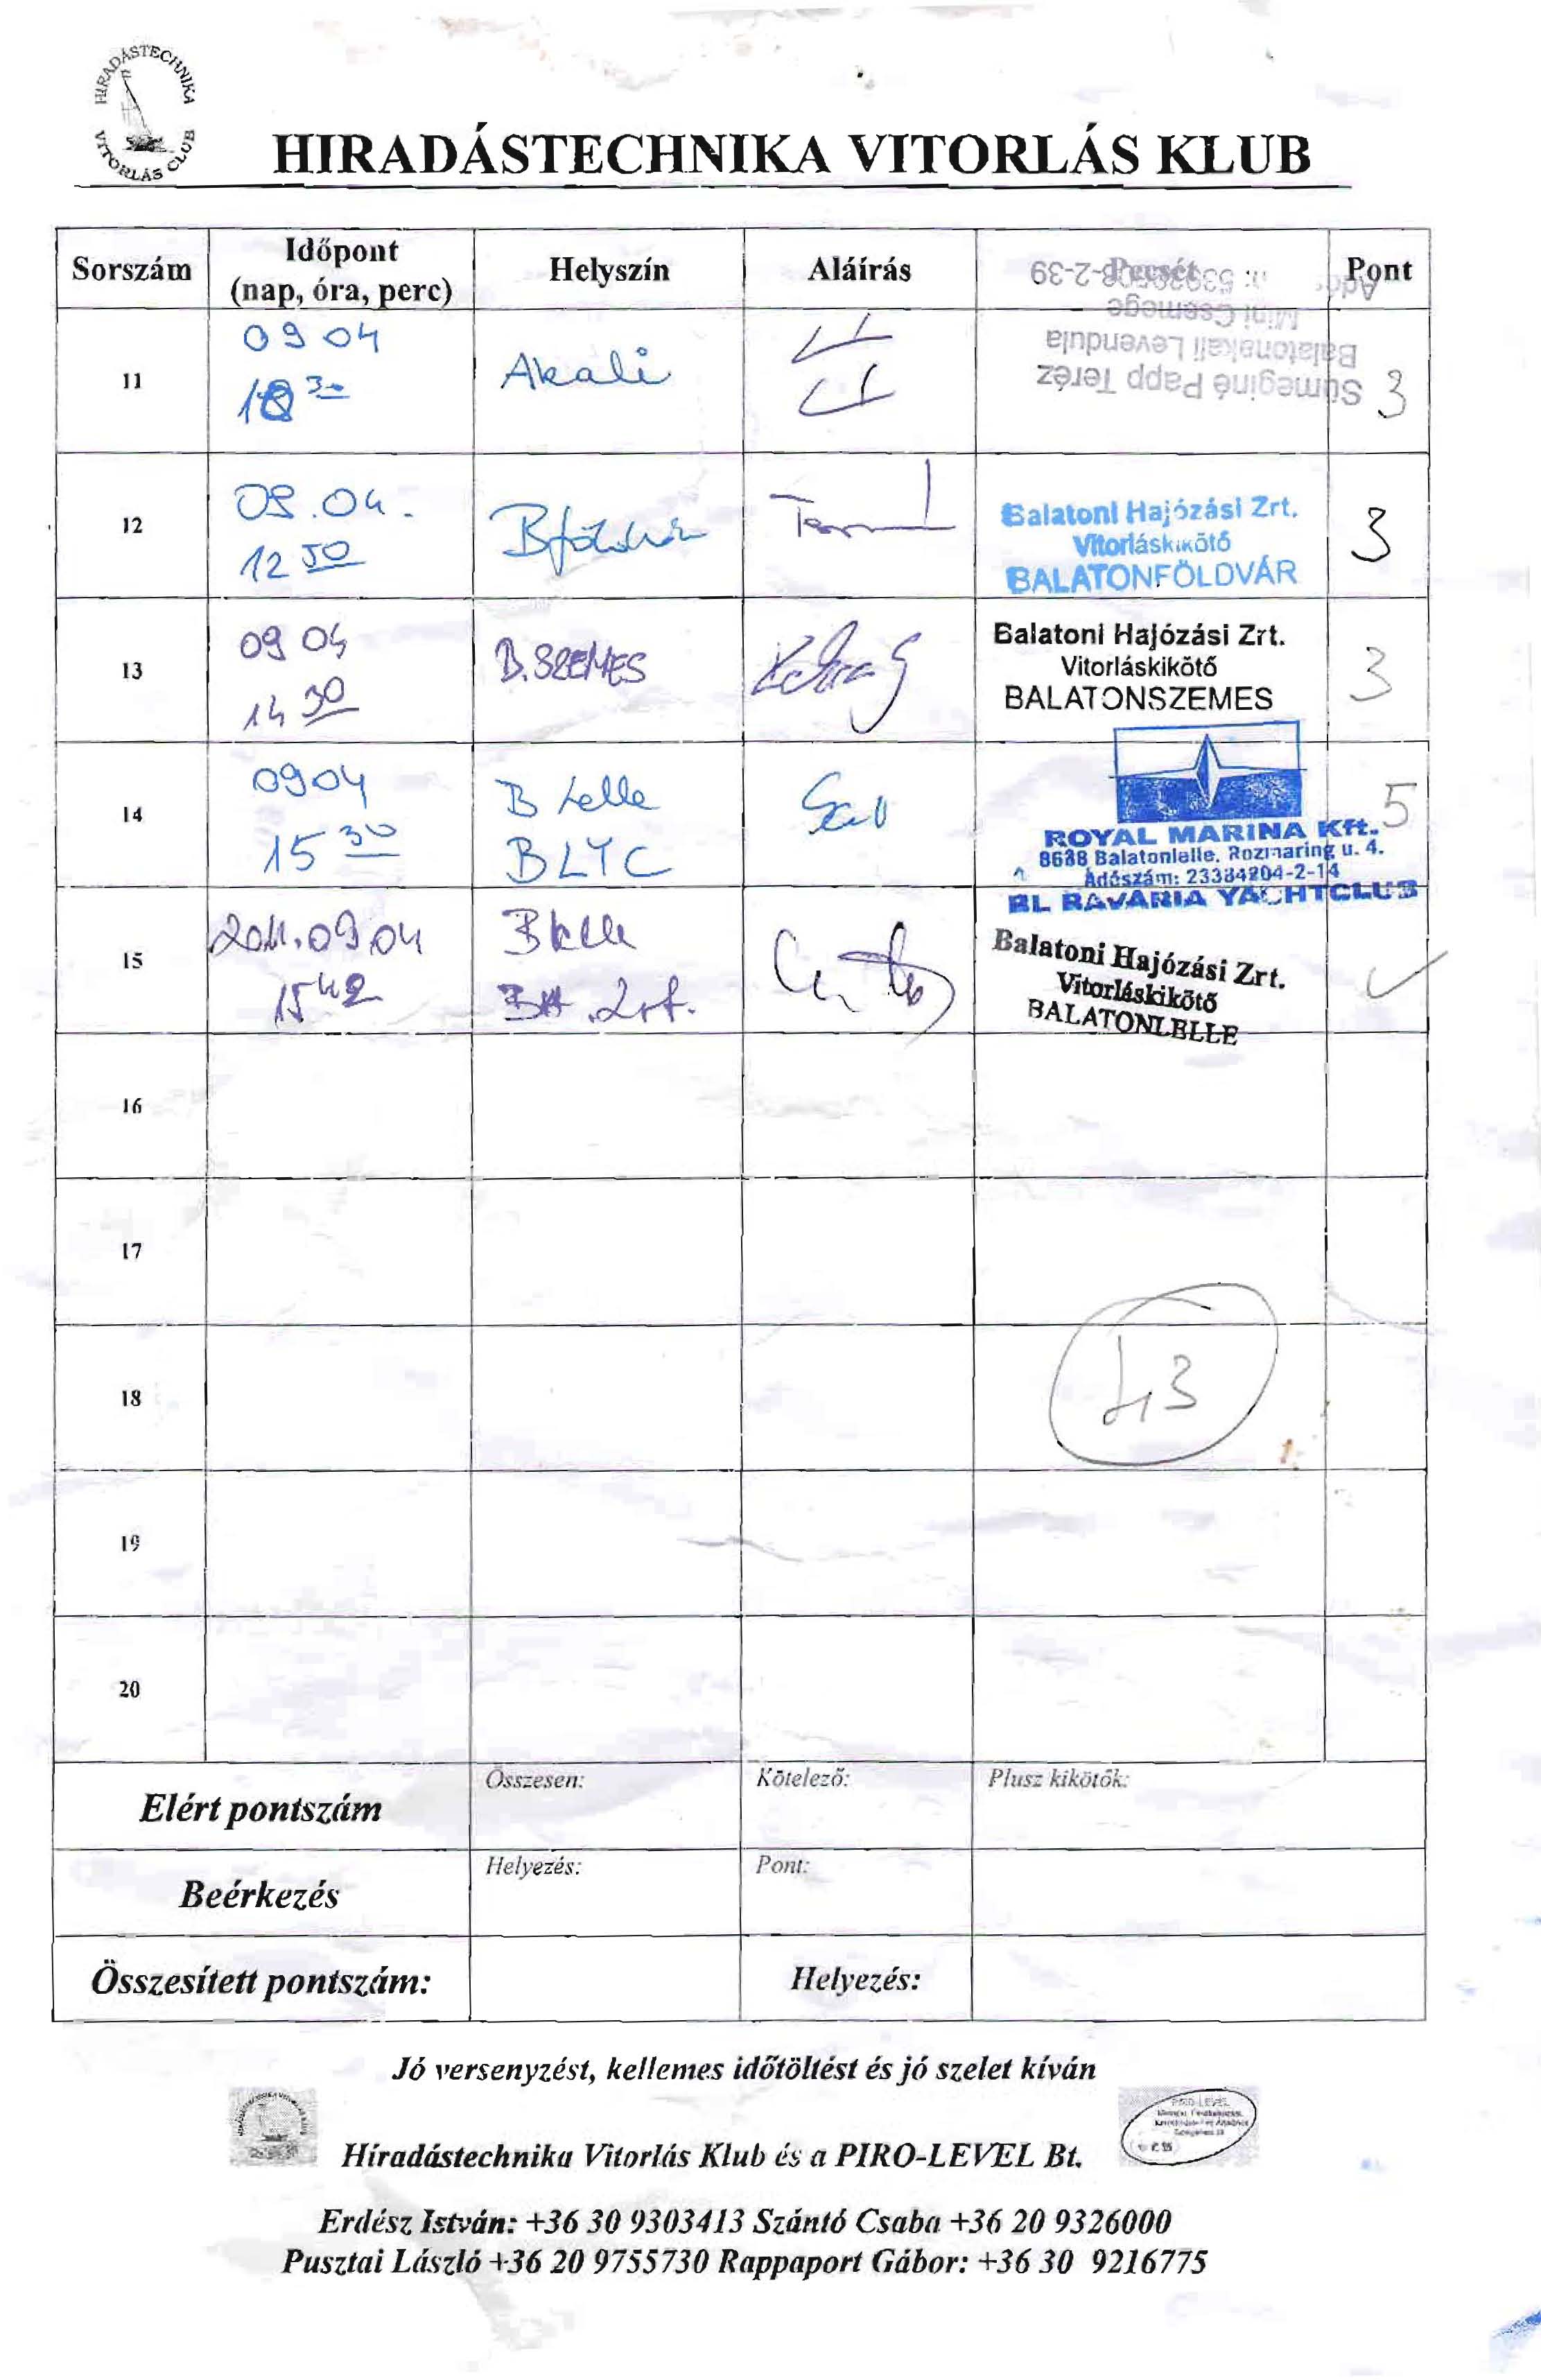 HIRADÁSTECHNIKA
VITORLÁS CLUB
HIRADÁSTECHNIKA VITORLÁS KLUB
Sorszám
Időpont
(nap, óra, perc)
Helyszín
Aláírás
Pecsét
Pont
11
09 04
30
Akali
Sümeginé Papp Teréz
Balatonakali Levendula
Mini Csemege
3
12
09.04.
12 50
Balatoni Hajózási Zrt.
Vitorláskikötő
BALATONFÖLDVÁR
3
13
09 04
14 30
B.SZEMES
Balatoni Hajózási Zrt.
Vitorláskikötő
BALATONSZEMES
3
14
0904
15 30
B lelle
BLYC
ROYAL MARINA Kft.
8638 Balatonlelle, Rozmaring u. 4.
Adószám: 23384204-2-14
BL BAVARIA YACHTCLUB
5
15
2011.09.04
15 42
Blelle
BH.Zrt.
Balatoni Hajózási Zrt.
Vitorláskikötő
BALATONLELLE
16
17
18
43
19
20
Elért pontszám
Összesen:
Kötelező:
Plusz kikötők:
Beérkezés
Helyezés:
Pont:
Összesített pontszám:
Helyezés:
Jó versenyzést, kellemes időtöltést és jó szelet kíván
PIRO-LEVEL
Híradástechnika Vitorlás Klub és a PIRO-LEVEL Bt.
Erdész István: +36 30 9303413 Szántó Csaba +36 20 9326000
Pusztai László +36 20 9755730 Rappaport Gábor: +36 30 9216775